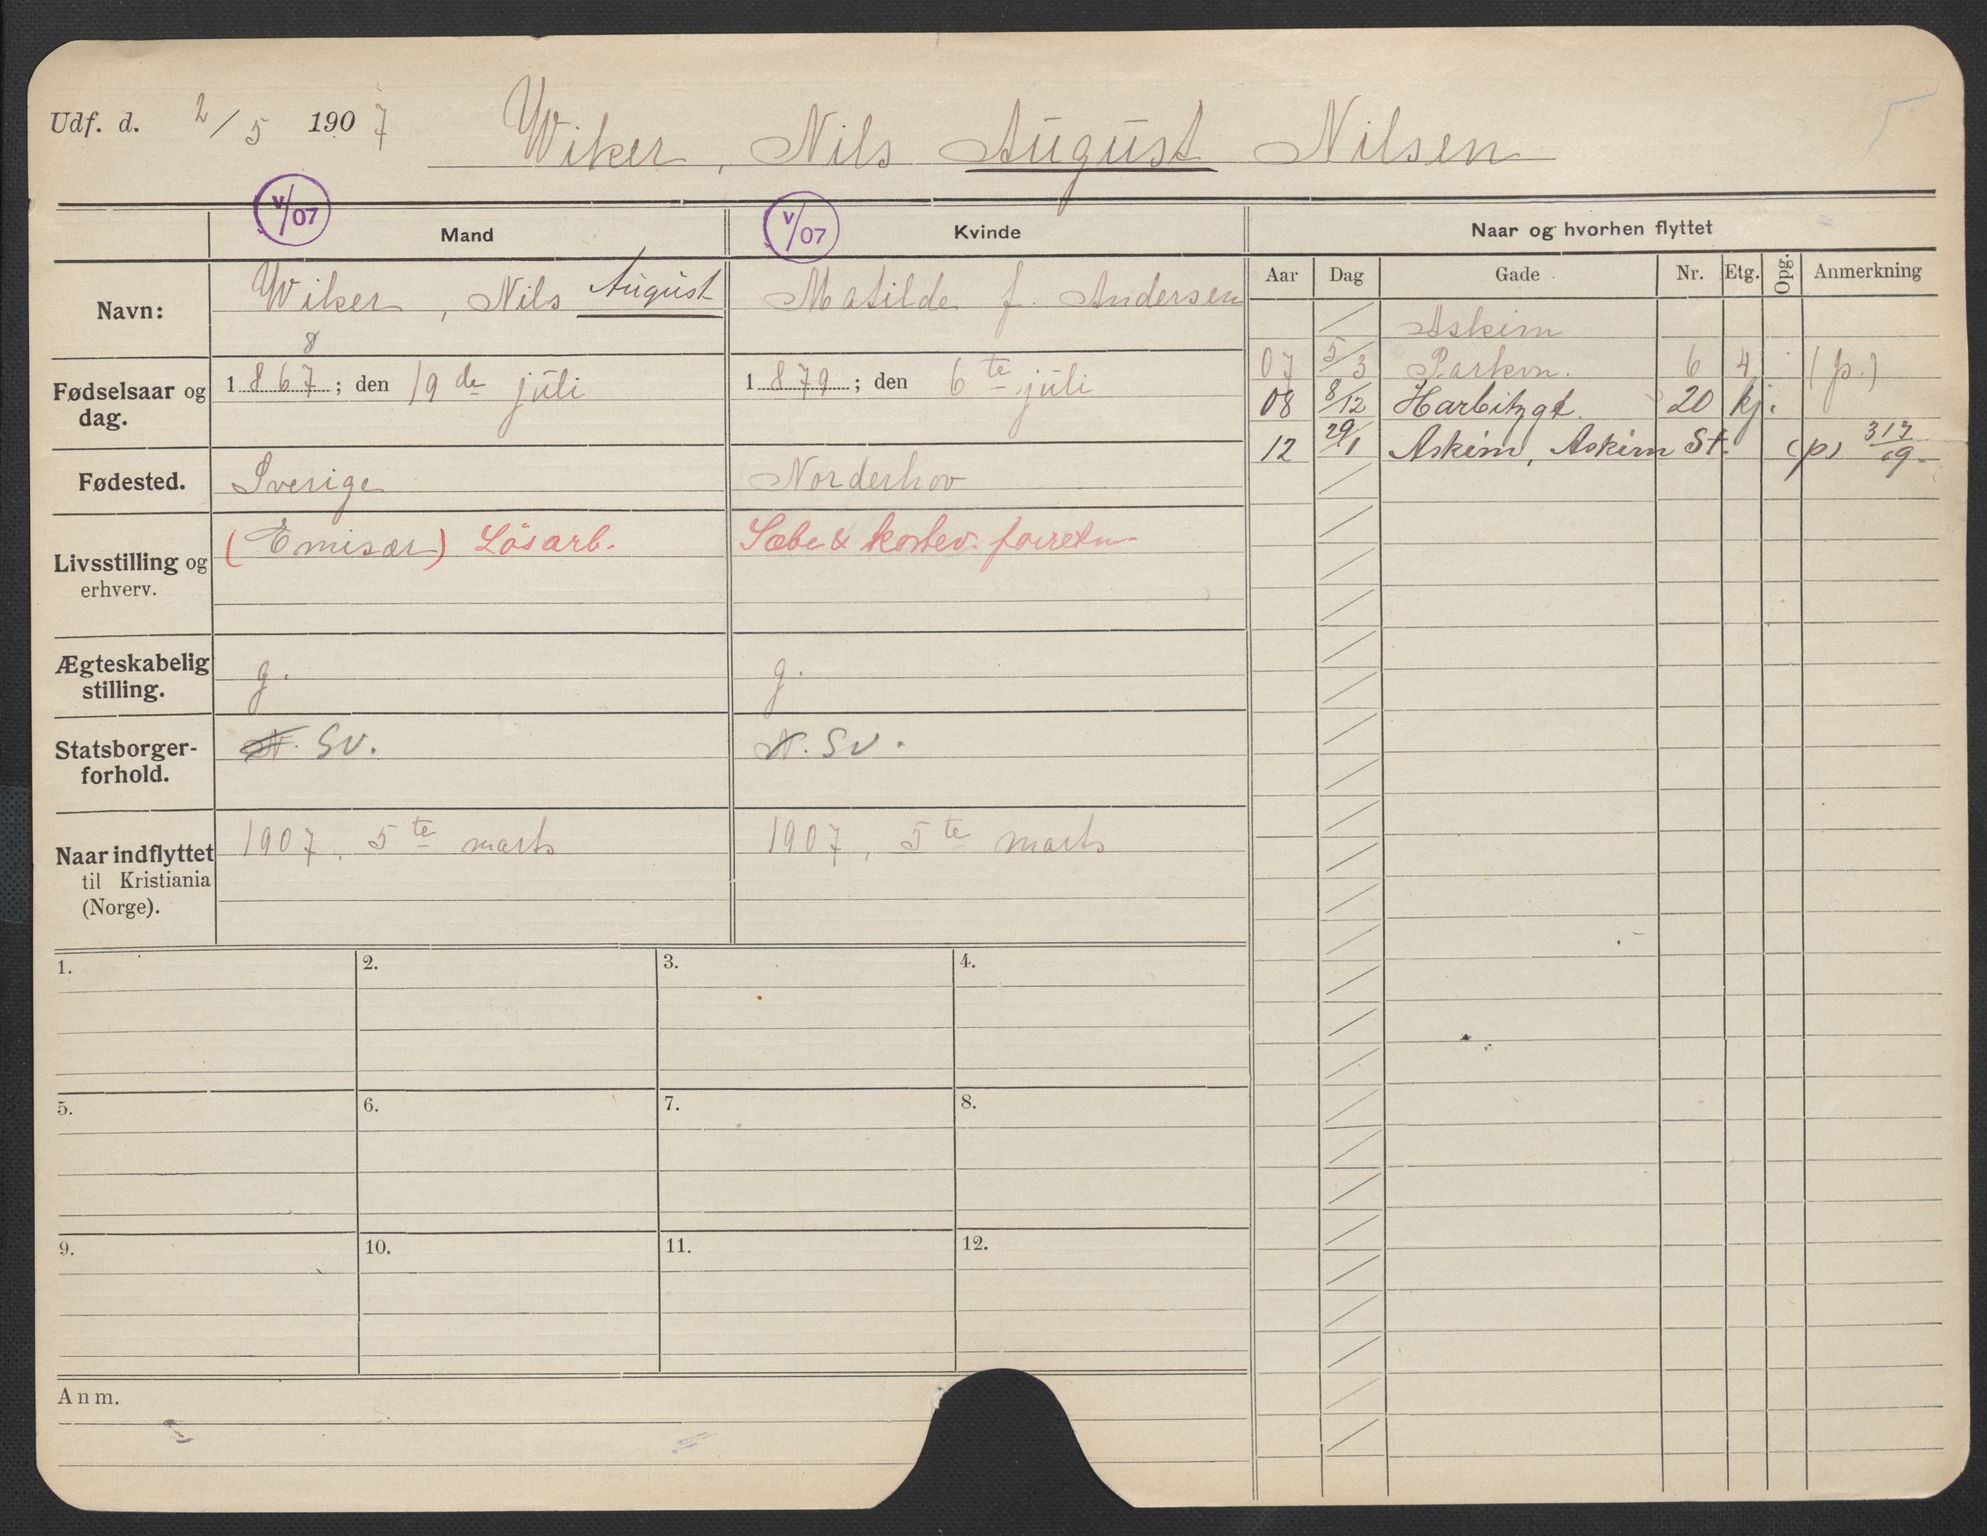 Udf. d. 2/5 1907 Wiker, Nils August Nilsen
V/07 V/07
Mand Kvinde Naar og hvorhen flyttet
Aar Dag Gade Nr. Etg. Opg. Anmerkning
Navn: Wiker, Nils August Matilde f. Andersen
Askim
8
07 5/3 Parkvn. 6 4 (p.)
Fødselsaar og dag. 1867; den 19de juli 1879; den 6te juli
08 8/12 Harbitzgt. 20 kj.
12 29/1 Askim, Askim St. (p) 313/19
Fødested. Sverige Norderhov
Livsstilling og erhverv. (Emisær) Løsarb. Sæbe & kostev. forretn.
Ægteskabelig stilling. g. g.
Statsborger-forhold. N. Sv. N. Sv.
Naar indflyttet til Kristiania (Norge). 1907, 5te marts 1907, 5te marts
1. 2. 3. 4.
5. 6. 7. 8.
9. 10. 11. 12.
Anm.